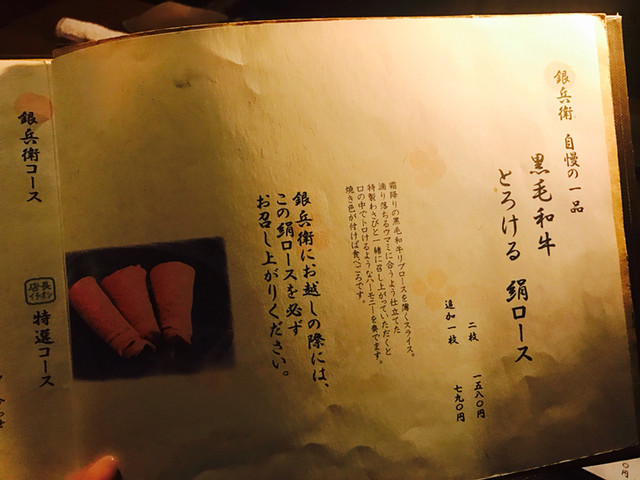 銀兵衛 自慢の一品
黒毛和牛
とろける 絹ロース
二枚 一五八〇円
追加一枚 七九〇円
霜降りの黒毛和牛リブロースを薄くスライス。
滴り落ちるウマミに合うよう仕立てた
特製わさびと一緒に召し上がっていただくと
口の中でトロけるようなハーモニーを奏でます。
焼き色が付けば食べごろです。
銀兵衛にお越しの際には、
この絹ロースを必ず
お召し上がりください。
銀兵衛コース
店長イチオシ
特選コース
円